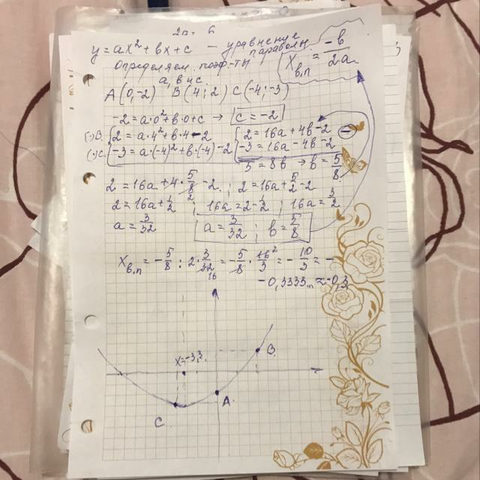 2a
y = ax² + bx + c – уравнение параболы
Определяем коэф-ты a, b и c
x в.п = -b/2a
A(0,-2) B(4; 2) C(-4; -3)
-2 = a·0² + b·0 + c → c = -2
2 = a·4² + b·4 - 2 2 = 16a + 4b - 2
-3 = a·(-4)² + b·(-4) - 2 -3 = 16a - 4b - 2
5 = 8b → b = 5/8
2 = 16a + 4·5/8 - 2; 2 = 16a + 5/2 - 2
2 = 16a + 1/2; 16a = 2 - 1/2; 16a = 3/2
a = 3/32 a = 3/32; b = 5/8
x в.п = -5/8 : 2·3/32 = -5/8 · 16/3 = -10/3 = -
-0,3333 ≈ -0,3
x = -3,3
B
A
C